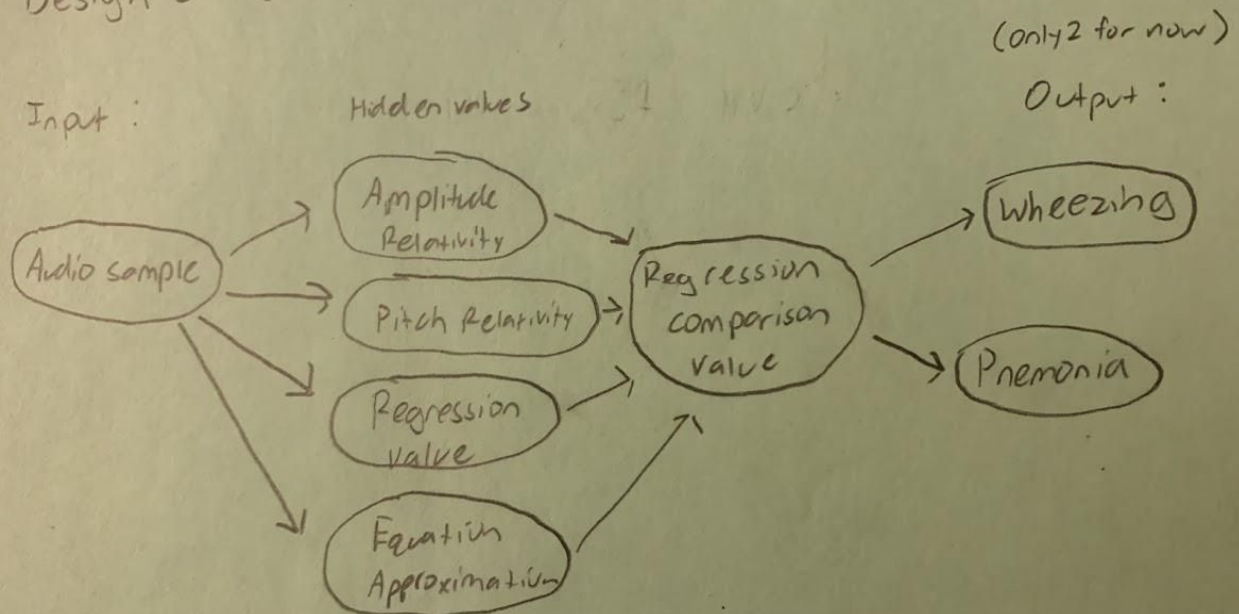 Design
(only 2 for now)
Input :
Hidden values
Output :
Audio sample
Amplitude
Relativity
Pitch Relativity
Regression
value
Equation
Approximation
Regression
comparison
value
Wheezing
Pnemonia